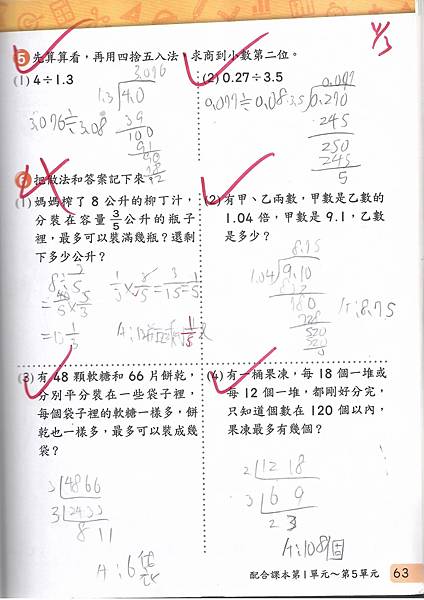 4/3
5 先算算看，再用四捨五入法，求商到小數第二位。
(1) 4÷1.3
3.076
1.3 4.0
39
100
91
3.076≒3.08
(2) 0.27÷3.5
0.077
3.5 0.270
245
250
245
5
0.077≒0.08
6 把做法和答案記下來。
(1) 媽媽榨了 8 公升的柳丁汁，
分裝在容量 3/5 公升的瓶子
裡，最多可以裝滿幾瓶？還剩
下多少公升？
1/3 × 3/5 = 3/15 = 1/5
(2) 有甲、乙兩數，甲數是乙數的
1.04 倍，甲數是 9.1，乙數
是多少？
8.75
1.04 9.10
832
780
728
520
520
A：8.75
(3) 有 48 顆軟糖和 66 片餅乾，
分別平分裝在一些袋子裡，
每個袋子裡的軟糖一樣多，餅
乾也一樣多，最多可以裝成幾
袋？
8 11
A：6袋
(4) 有一桶果凍，每 18 個一堆或
每 12 個一堆，都剛好分完，
只知道個數在 120 個以內，
果凍最多有幾個？
2 12 18
3 6 9
2 3
A：108個
配合課本第1單元～第5單元 63